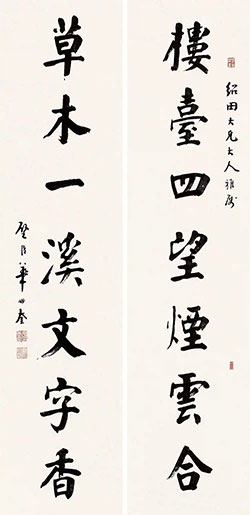 紹田大兄大人雅属
樓臺四望煙雲合
草木一溪文字香
華世奎